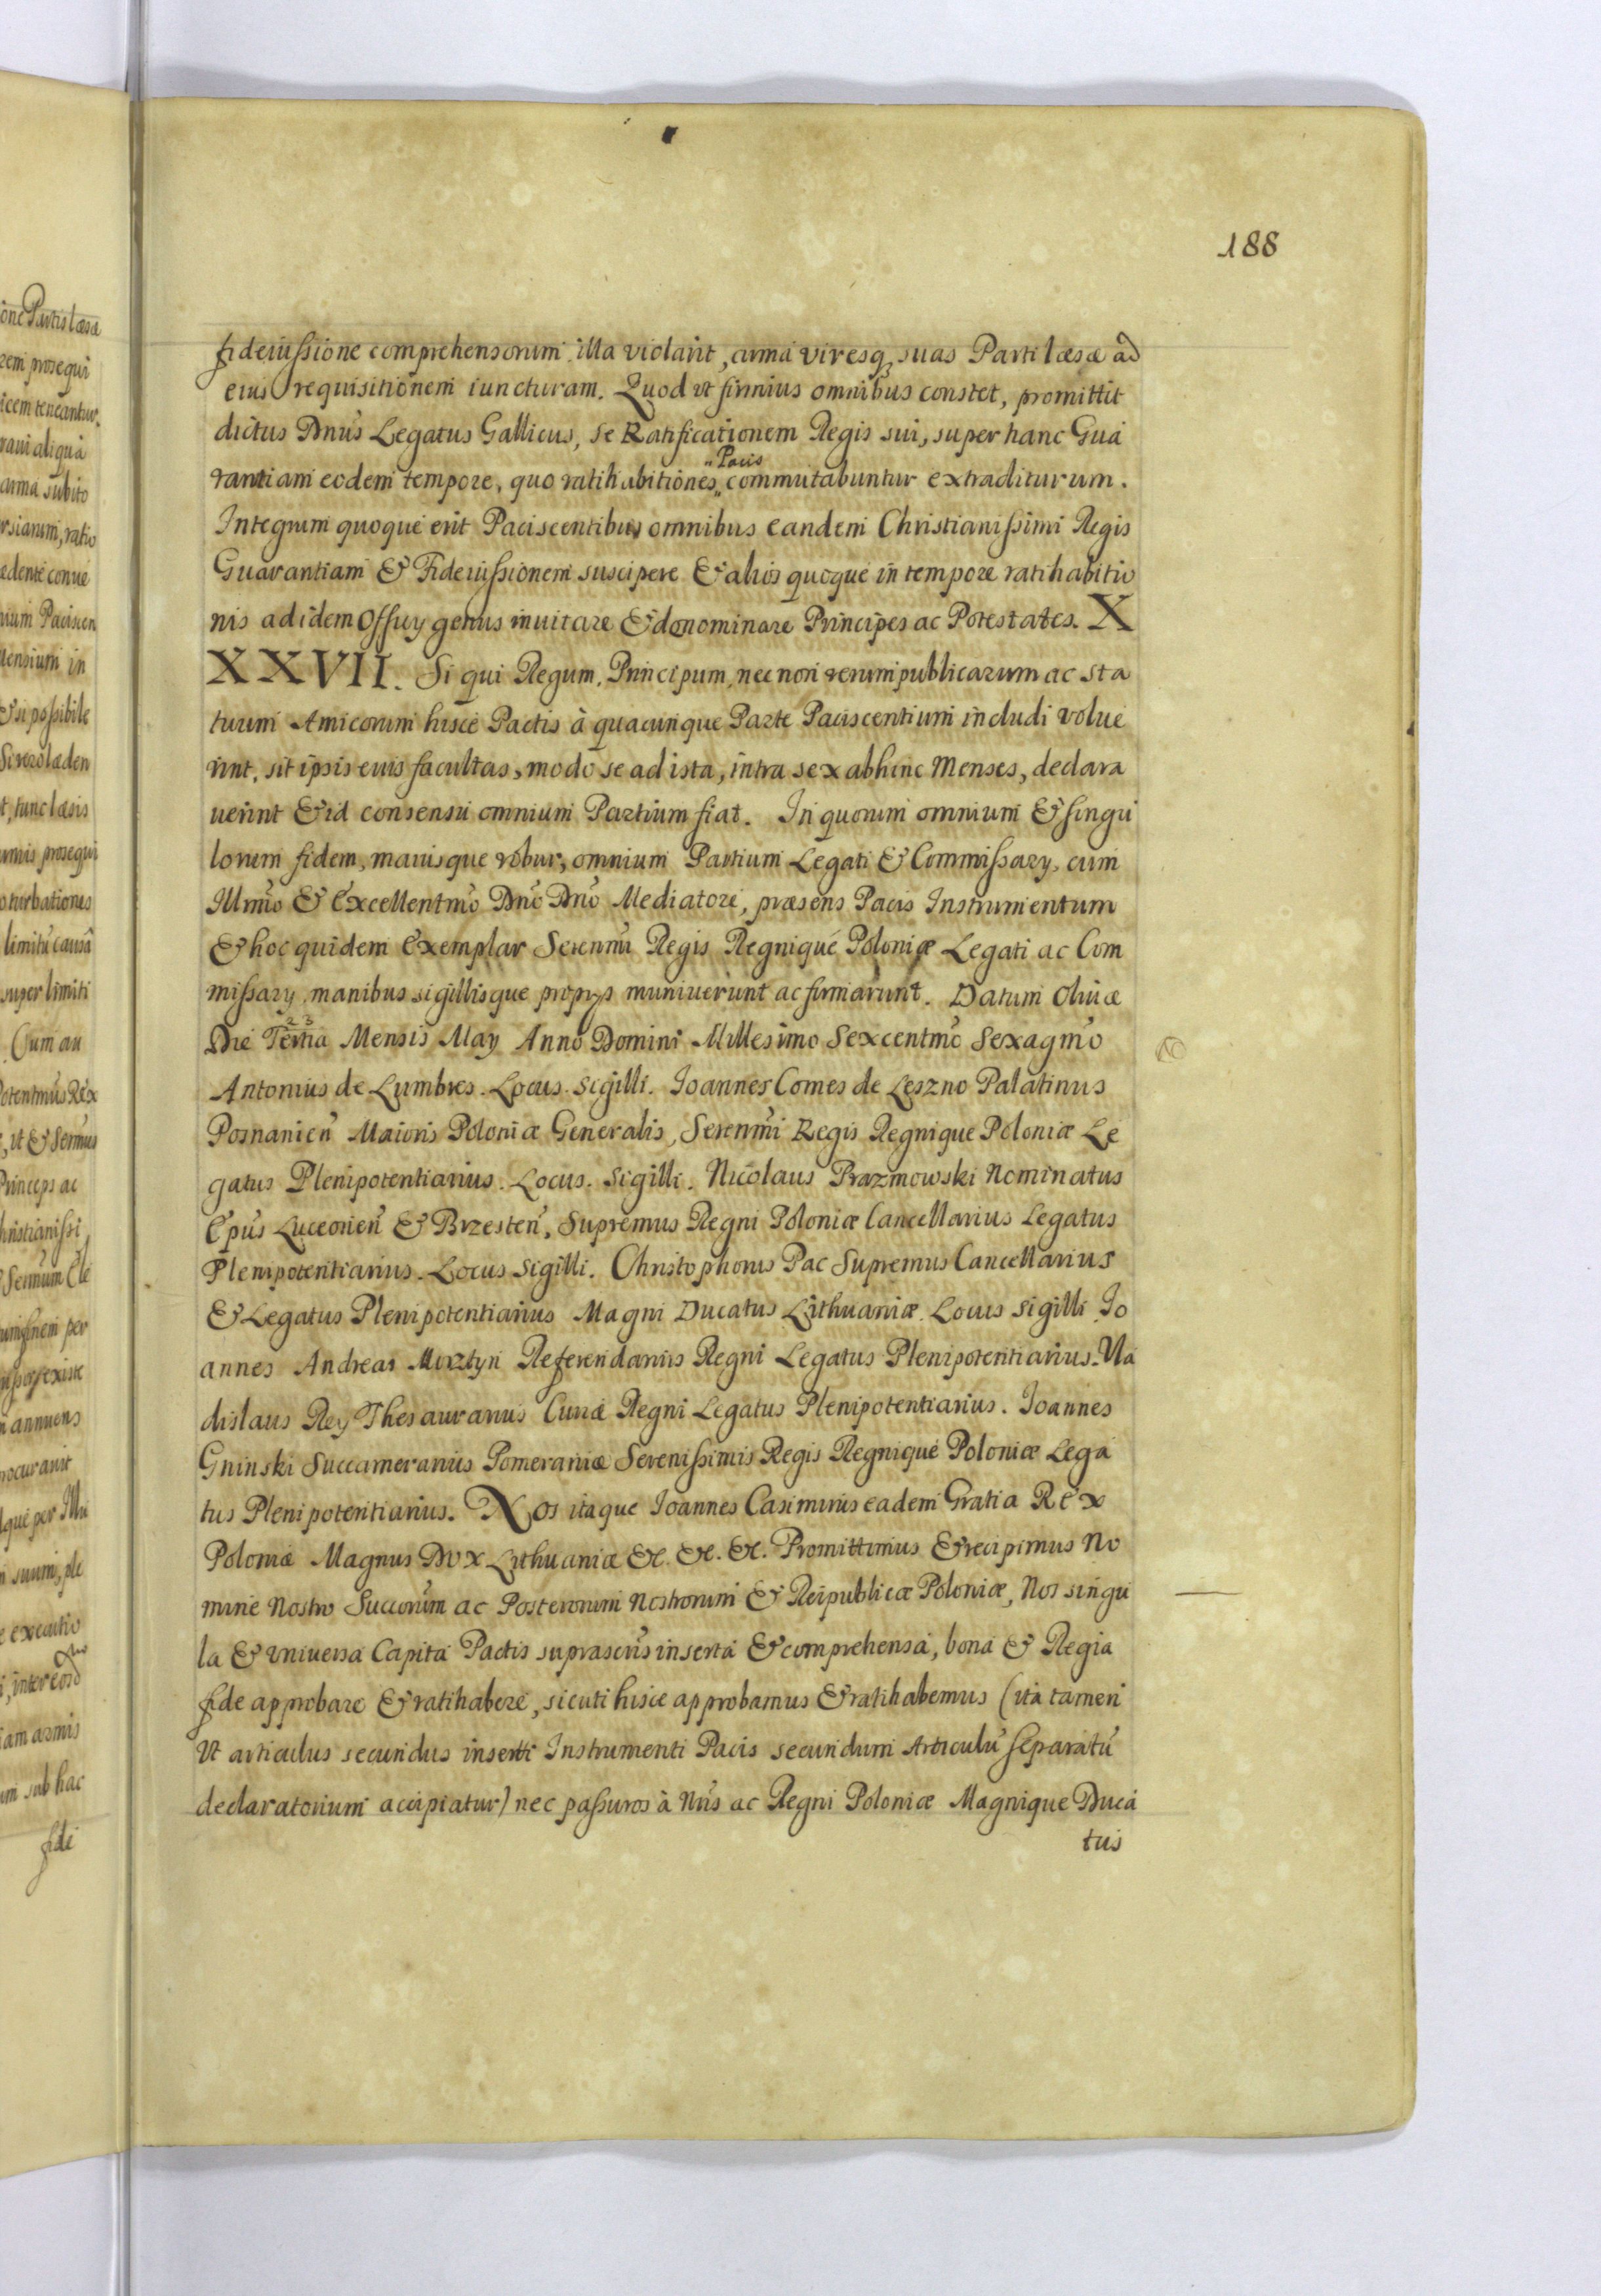 188
fideiussione comprehensorum illa violarit, arma viresq; suas Parti læsæ ad
eius requisitionem iuncturam. Quod ut firmius omnibus constet, promittit
dictus Dnus Legatus Gallicus, se Ratificationem Regis sui, super hanc Gua
rantiam eodem tempore, quo ratihabitiones „Pacis„ commutabuntur extraditurum.
Integrum quoque erit Paciscentibus omnibus eandem Christianissimi Regis
Guarantiam & Fideiussionem suscipere & alios quoque in tempore ratihabitio
nis ad idem Officy genus inuitare & denominare Principes ac Potestates. X
XXVII. Si qui Regum, Principum, nec non rerum publicarum ac sta
tuum Amicorum hisce Pactis à quacunque Parte Paciscentium includi volue
rint, sit ipsis euis facultas, modo se ad ista, intra sex abhinc Menses, declara
uerint & id consensu omnium Partium fiat. In quorum omnium & singu
lorum fidem, maiusque robur, omnium Partium Legati & Commissary, cum
Illmo & Excellentmo Dno Dno Mediatore, præsens Pacis Instrumentum
& hoc quidem Exemplar Serenmi Regis Regnique Poloniæ Legati ac Com
missary manibus sigillisque proprys muniuerunt ac firmarunt. Datum Oliuæ
Die Tertia 23 Mensis May Anno Domini Millesimo Sexcentmo Sexagmo
Antonius de Lumbres. Locus. Sigilli. Ioannes Comes de Leszno Palatinus
Posnanien Maioris Poloniæ Generalis, Serenmi Regis Regnique Poloniæ Le
gatus Plenipotentiarius. Locus. Sigilli. Nicolaus Prazmowski Nominatus
Epus Luceorien & Brzesten, Supremus Regni Poloniæ Cancellarius Legatus
Plenipotentiarius. Locus Sigilli. Christophorus Pac Supremus Cancellarius
& Legatus Plenipotentiarius Magni Ducatus Lithuaniæ. Locus Sigilli. Io
annes Andreas Morztyn Referendarius Regni Legatus Plenipotentiarius. Vla
dislaus Rey Thesaurarius Curiæ Regni Legatus Plenipotentiarius. Ioannes
Gninski Succamerarius Pomeraniæ Serenissimis Regis Regnique Poloniæ Lega
tus Plenipotentiarius. Nos itaque Ioannes Casimirus eadem Gratia Rex
Poloniæ Magnus Dux Lithuaniæ &c. &c. &c. Promittimus & recipimus No
mine Nostro Succorum ac Posterorum Nostrorum & Reipublicæ Poloniæ, Nos singu
la & vniuersa Capita Pactis suprascris inserta & comprehensa, bona & Regia
fide approbare & ratihabere, sicuti hisce approbamus & ratihabemus (ita tamen
Ut articulus secundus inserti Instrumenti Pacis secundum Articulu separatu
declaratorium accipiatur) nec passuros à Nris ac Regni Poloniæ Magnique Duca
tus